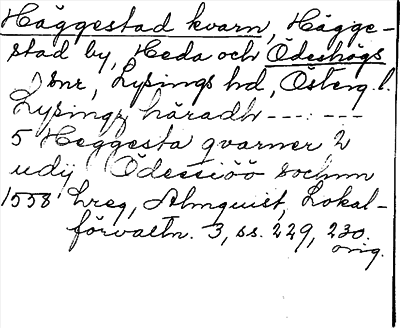 Häggestad kvarn, Hägge-
stad by, Heda och Ödeshögs
snr, Lysings hd, Österg. l.
Lysings häradh --- : ---
5 Heggesta qvarner 2
udij Ödessiöö sochnn
1558 hreg, Almquist, Lokal-
förvaltn. 3, ss. 229, 230.
orig.